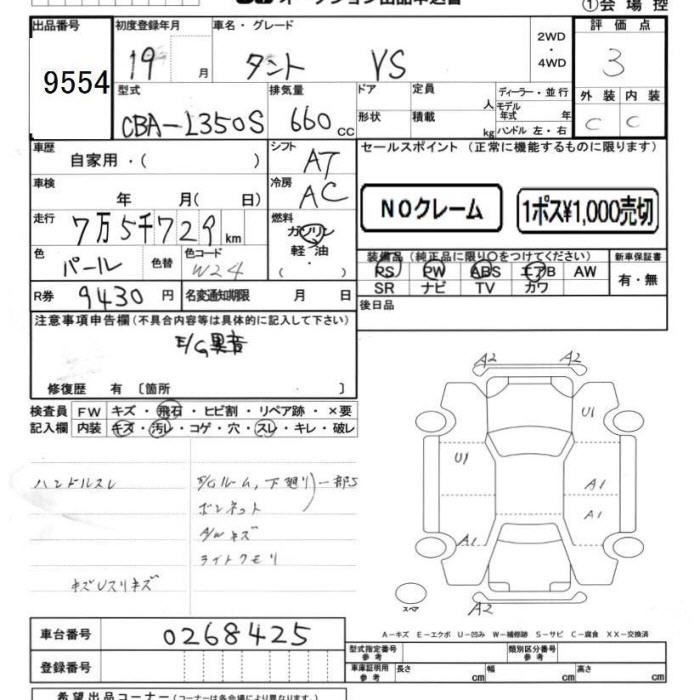 ①会場控
出品番号 初度登録年月 車名・グレード 2WD・4WD 評価点
9554 19 月 タント VS 3
型式 排気量 ドア 定員 人 ディーラー・並行 外装 内装
CBA-L350S 660 cc 形状 積載 kg モデル年式 年 ハンドル 左・右 C C
車歴 自家用・( ) シフト AT セールスポイント (正常に機能するものに限ります)
車検 年 月( 日) 冷房 AC
NOクレーム 1ポス¥1,000売切
走行 7万5千729km 燃料 ガソリン 軽油 ・( )
色 パール 色替 色コード W24
装備品 (純正品に限り○をつけてください) 新車保証書
PS PW ABS エアB AW 有・無
SR ナビ TV カワ
R券 9430円 名変通知期限 月 日 後日品
注意事項申告欄(不具合内容等は具体的に記入して下さい)
E/G異音
修復歴 有 〔箇所 〕
検査員 FW キズ・飛石・ヒビ割・リペア跡・×要
記入欄 内装 キズ・汚レ・コゲ・穴・スレ・キレ・破レ
ハンドルスレ E/Gルーム,下廻り)一部S
ボンネット
A/Wキズ
ライトクモリ
キズUスリキズ
A2 A2
U1
U1
A1
A1
A1
スペア A2
A-キズ E-エクボ U-凹み W-補修跡 S-サビ C-腐食 XX-交換済
車台番号 0268425
型式指定番号 参考 類別区分番号 参考
登録番号 車庫証明用 参考 長さ cm 幅 cm 高さ cm
希望出品コーナー(コーナーは各会場により異なります)